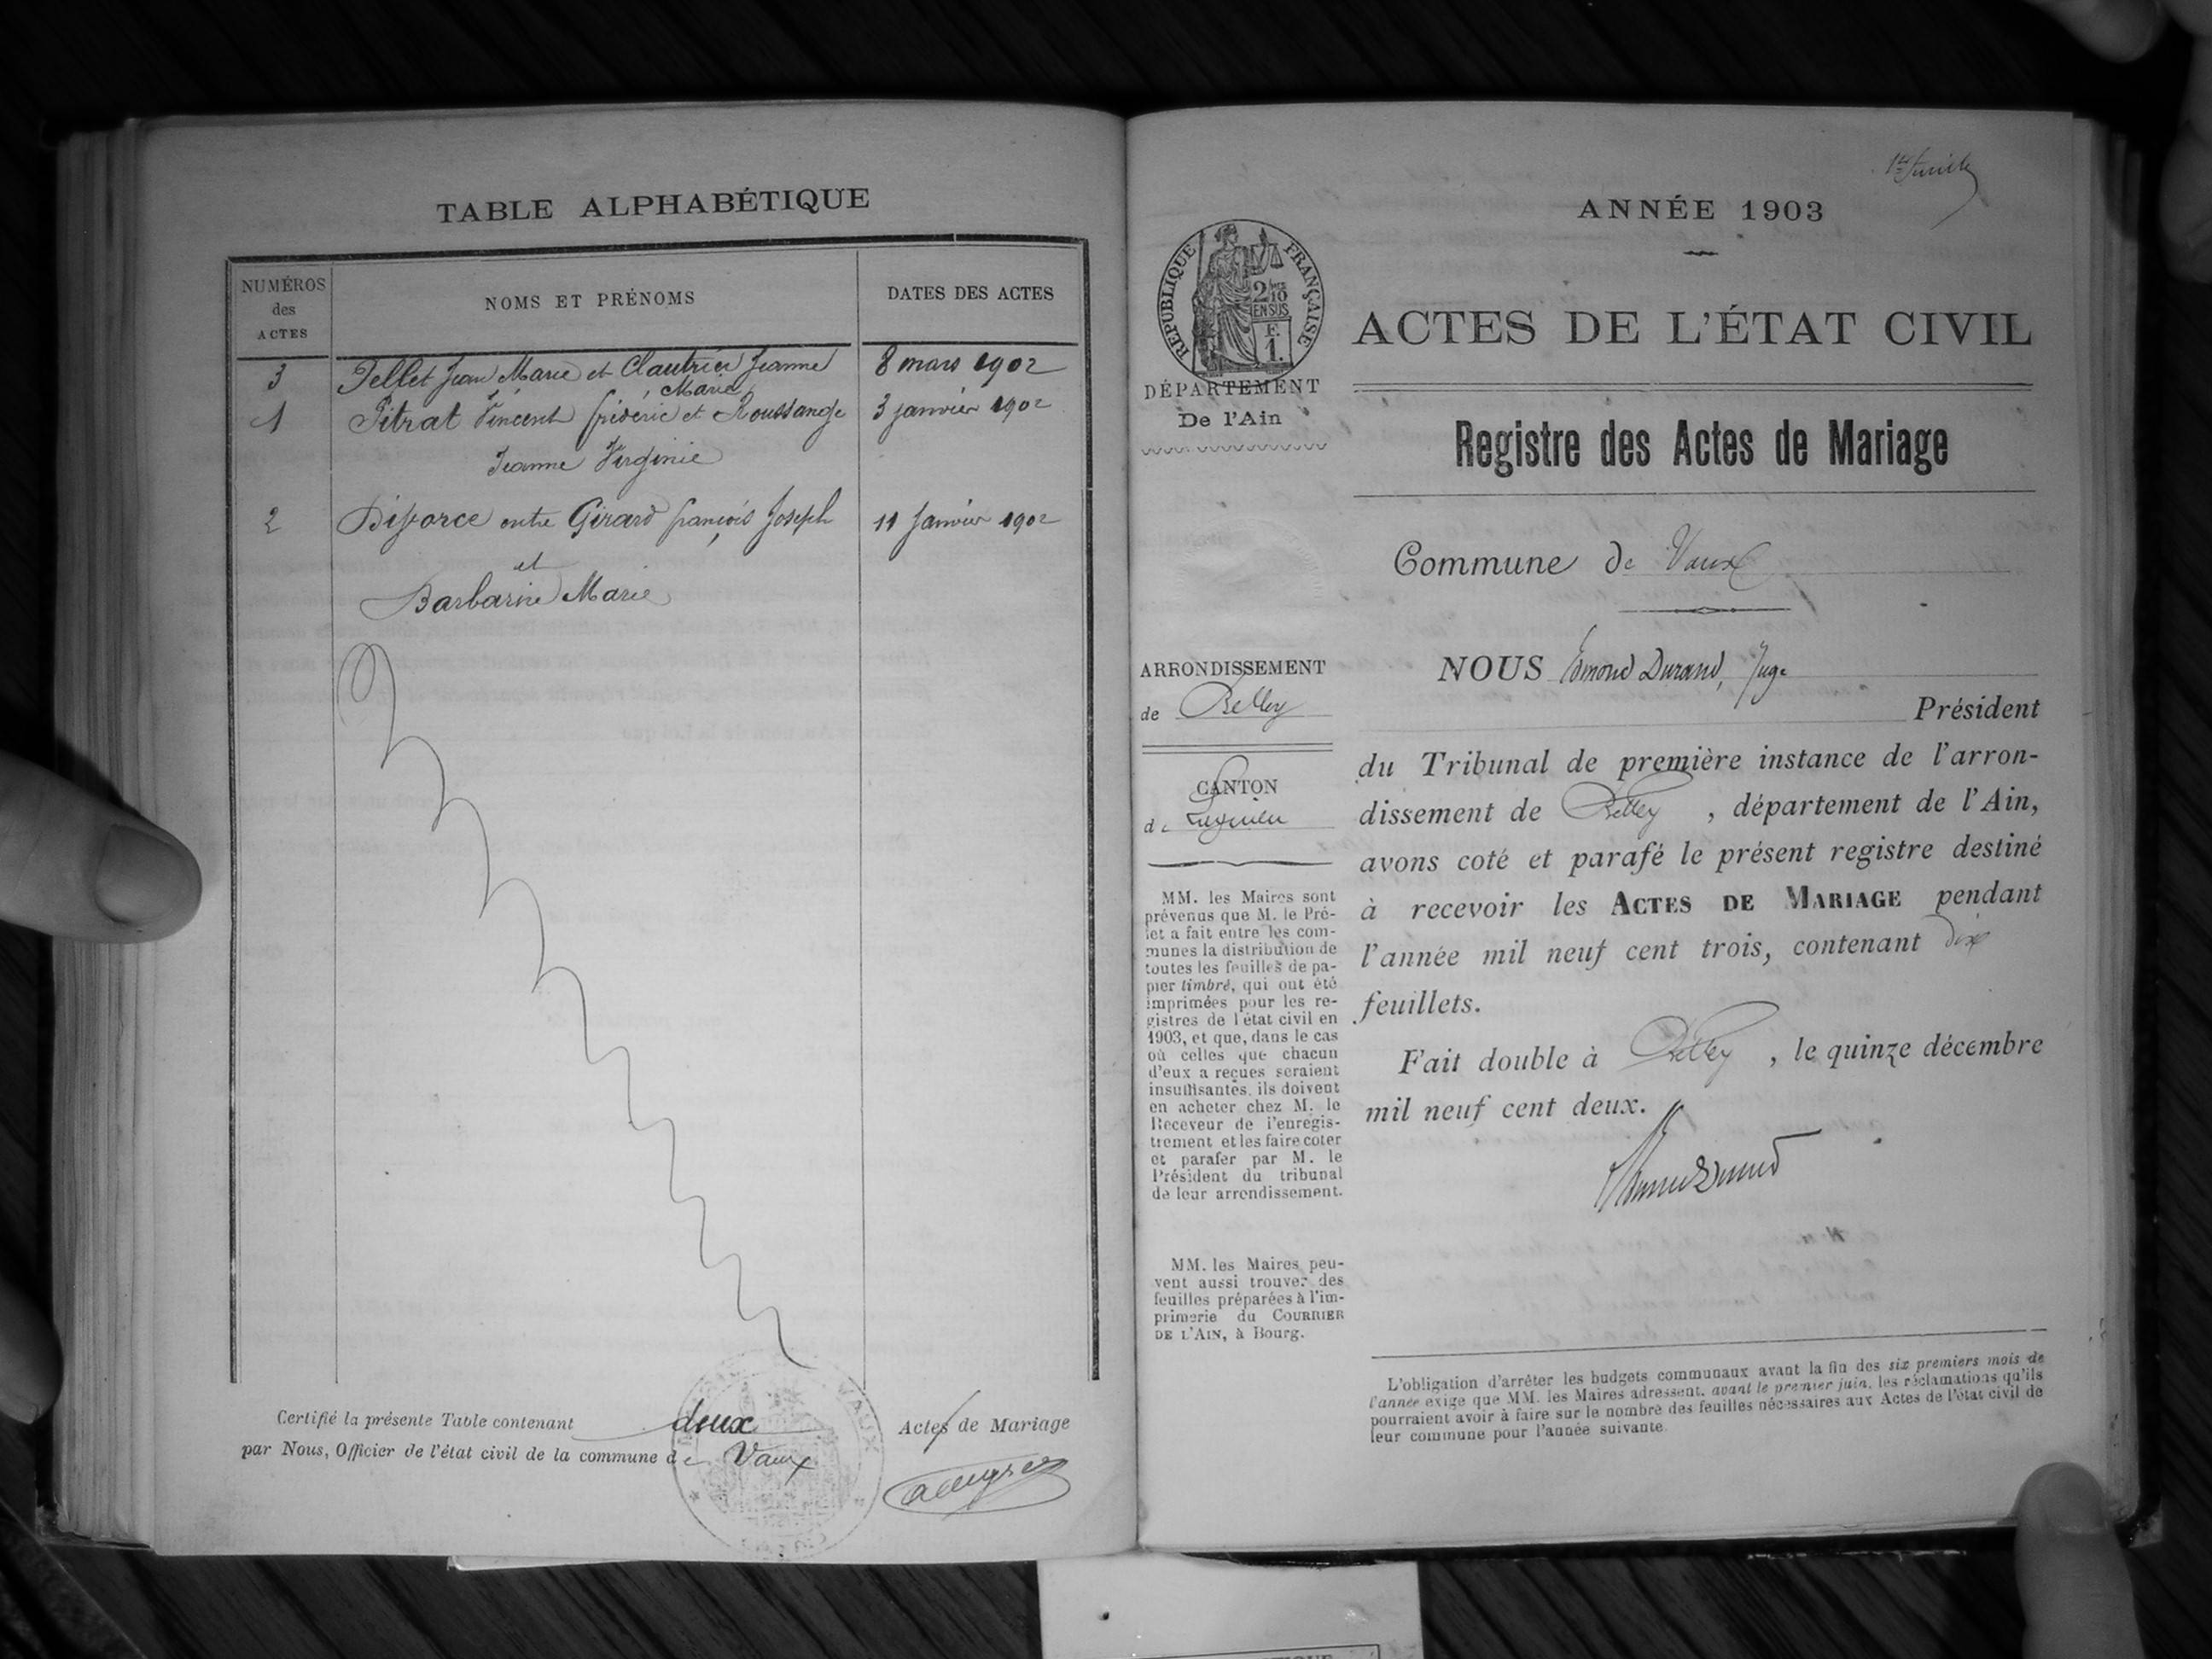 TABLE ALPHABÉTIQUE
NUMÉROS
des
ACTES
NOMS ET PRÉNOMS
DATES DES ACTES
3 Pellet Jean Marie et Clautrier Jeanne 8 mars 1902
Marie
1 Pitrat Vincent fréderic et Roussange 3 janvier 1902
Jeanne Virginie
2 Divorce entre Girard françois Joseph 11 Janvier 1902
et
Barbarin Marie
Certifié la présente Table contenant deux Actes de Mariage
par Nous, Officier de l'état civil de la commune de Vaux
VAUX
1er feuillet
ANNÉE 1903
RÉPUBLIQUE FRANÇAISE
2/10
EN SUS
F.
1.
ACTES DE L'ÉTAT CIVIL
DÉPARTEMENT
De l'Ain
Registre des Actes de Mariage
Commune de Vaux
ARRONDISSEMENT
de Belley
CANTON
de Lagnieu
NOUS Edmond Durand, Juge
Président
du Tribunal de première instance de l'arron-
dissement de Belley, département de l'Ain,
avons coté et parafé le présent registre destiné
à recevoir les ACTES DE MARIAGE pendant
l'année mil neuf cent trois, contenant dix
feuillets.
Fait double à Belley, le quinze décembre
mil neuf cent deux.
MM. les Maires sont
prévenus que M. le Pré-
fet a fait entre les com-
munes la distribution de
toutes les feuilles de pa-
pier timbré, qui ont été
imprimées pour les re-
gistres de l'état civil en
1903, et que, dans le cas
où celles que chacun
d'eux a reçues seraient
insuffisantes, ils doivent
en acheter chez M. le
Receveur de l'enregis-
trement et les faire coter
et parafer par M. le
Président du tribunal
de leur arrondissement.
MM. les Maires peu-
vent aussi trouver des
feuilles préparées à l'im-
primerie du COURRIER
DE L'AIN, à Bourg.
L'obligation d'arrêter les budgets communaux avant la fin des six premiers mois de
l'année exige que MM. les Maires adressent, avant le premier juin, les réclamations qu'ils
pourraient avoir à faire sur le nombre des feuilles nécessaires aux Actes de l'état civil de
leur commune pour l'année suivante.